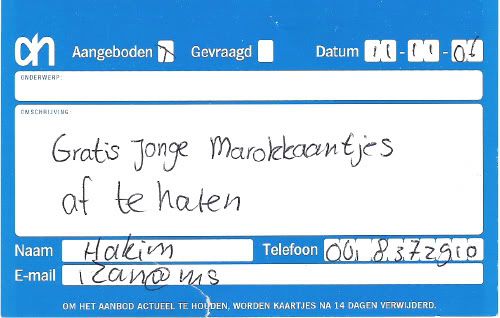 ah Aangeboden Gevraagd Datum 11-11-06
ONDERWERP:
OMSCHRIJVING:
Gratis jonge Marokkaantjes
af te halen
Naam Hakim Telefoon
E-mail
OM HET AANBOD ACTUEEL TE HOUDEN, WORDEN KAARTJES NA 14 DAGEN VERWIJDERD.